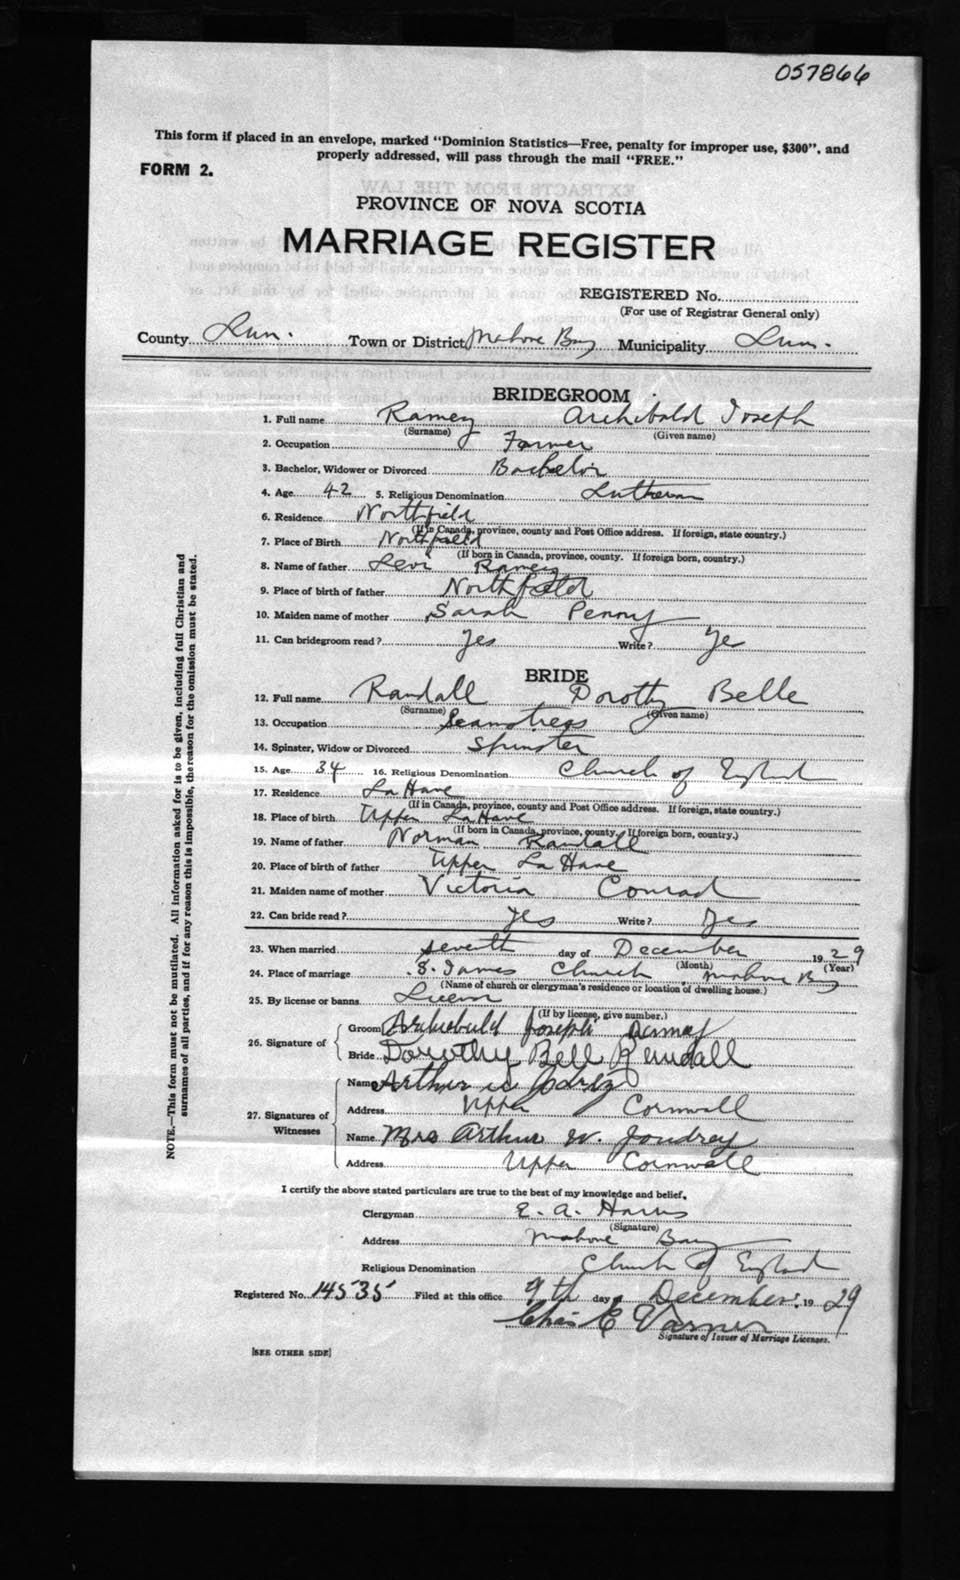 057866
This form if placed in an envelope, marked "Dominion Statistics—Free, penalty for improper use, $300", and
properly addressed, will pass through the mail "FREE."
FORM 2.
PROVINCE OF NOVA SCOTIA
MARRIAGE REGISTER
REGISTERED No.
(For use of Registrar General only)
County Lun. Town or District Mahone Bay Municipality Lun.
BRIDEGROOM
1. Full name Ramey Archibald Joseph
(Surname) (Given name)
2. Occupation Farmer
3. Bachelor, Widower or Divorced Bachelor
4. Age 42 5. Religious Denomination Lutheran
6. Residence Northfield
(If in Canada, province, county and Post Office address. If foreign, state country.)
7. Place of Birth Northfield
(If born in Canada, province, county. If foreign born, country.)
8. Name of father Levi Ramey
9. Place of birth of father Northfield
10. Maiden name of mother Sarah Penny
11. Can bridegroom read? Yes Write? Ye
BRIDE
12. Full name Randall Dorothy Belle
(Surname) (Given name)
13. Occupation Seamstress
14. Spinster, Widow or Divorced Spinster
15. Age 34 16. Religious Denomination Church of England
17. Residence La Have
(If in Canada, province, county and Post Office address. If foreign, state country.)
18. Place of birth Upper La Have
(If born in Canada, province, county. If foreign born, country.)
19. Name of father Norman Randall
20. Place of birth of father Upper La Have
21. Maiden name of mother Victoria Conrad
22. Can bride read? Yes Write? Yes
23. When married seventh day of December 1929
(Month) (Year)
24. Place of marriage S. James Church Mahone Bay
(Name of church or clergyman's residence or location of dwelling house.)
25. By license or banns Licen
(If by license, give number.)
26. Signature of
Groom Archiebald Joseph Ramey
Bride Dorothy Bell Randall
27. Signatures of Witnesses
Name Arthur W
Address Upper Cornwall
Name Mrs Arthur W. Joudrey
Address Upper Cornwall
I certify the above stated particulars are true to the best of my knowledge and belief.
Clergyman E. A. Harris
(Signature)
Address Mahone Bay
Religious Denomination Church of England
Registered No. 14535 Filed at this office 9th day December 1929
Chas E Varner
Signature of Issuer of Marriage Licenses.
[SEE OTHER SIDE]
NOTE.—This form must not be mutilated. All information asked for is to be given, including full Christian and
surnames of all parties, and if for any reason this is impossible, the reason for the omission must be stated.